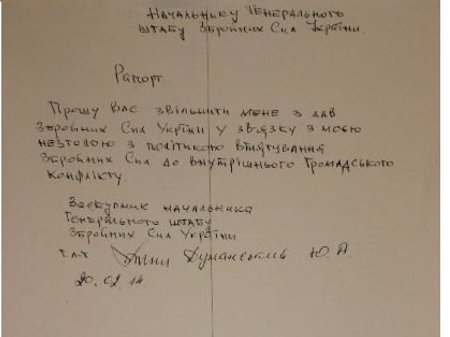 Начальнику Генерального
штабу Збройних Сил України.
Рапорт
Прошу Вас звільнити мене з лав
Збройних Сил України у зв'язку з моєю
незгодою з політикою втягування
Збройних Сил до внутрішнього громадського
конфлікту
Заступник начальника
Генерального штабу
Збройних Сил України
Думанський Ю. А.
20.02.14